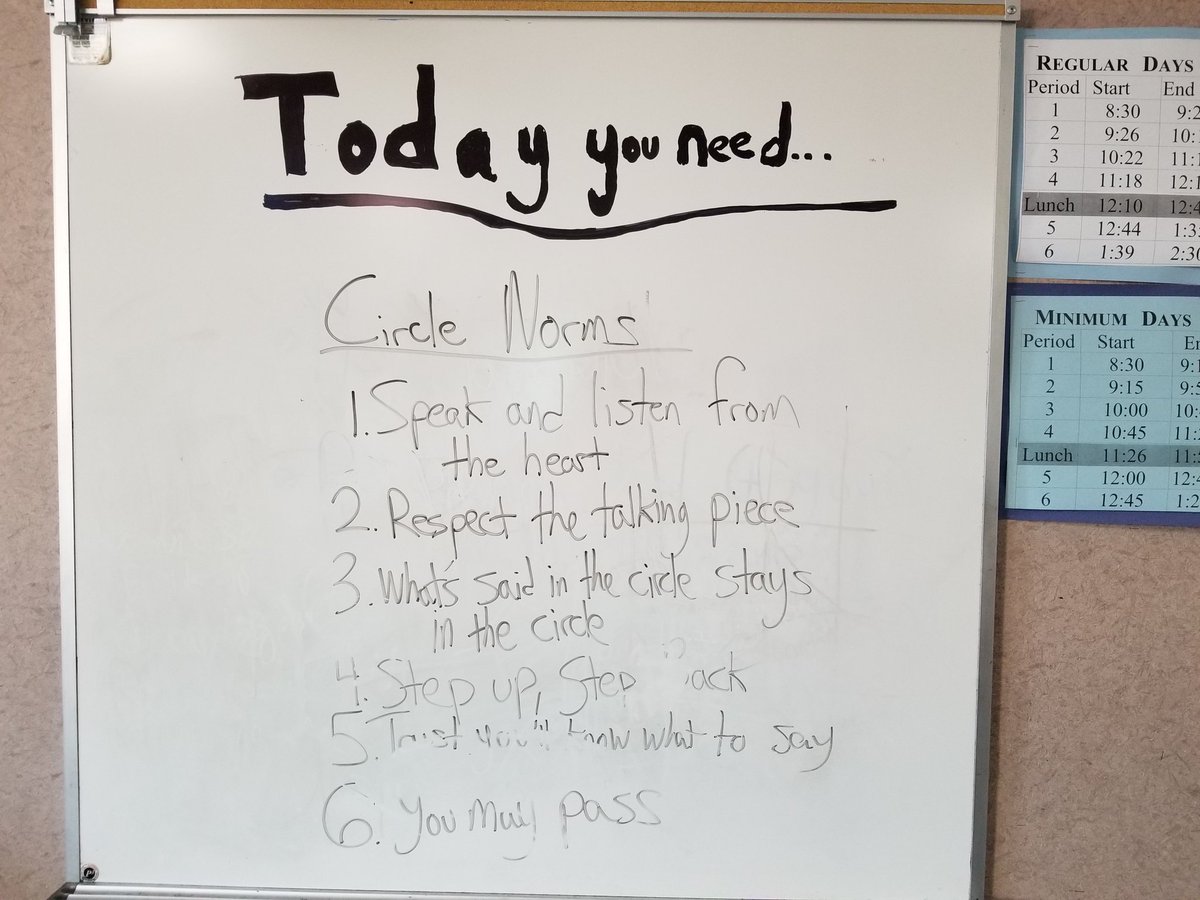 Today you need...
Circle Norms
1. Speak and listen from
the heart
2. Respect the talking piece
3. What's said in the circle stays
in the circle
4. Step up, Step back
5. Trust you'll know what to say
6. You may pass
REGULAR DAYS
Period Start End
1 8:30
2 9:26
3 10:22
4 11:18
Lunch 12:10
5 12:44
6 1:39
MINIMUM DAYS
Period Start
1 8:30
2 9:15
3 10:00
4 10:45
Lunch 11:26
5 12:00
6 12:45